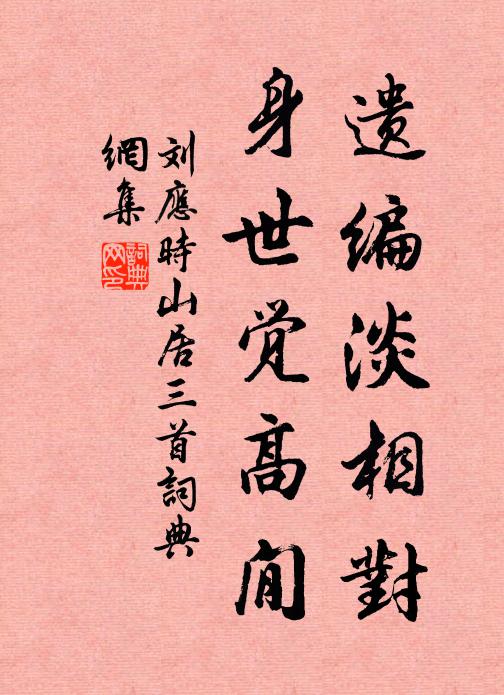 遗编淡相對
身世觉高闲
刘應時山居三首詞典
網集
詞典
网印